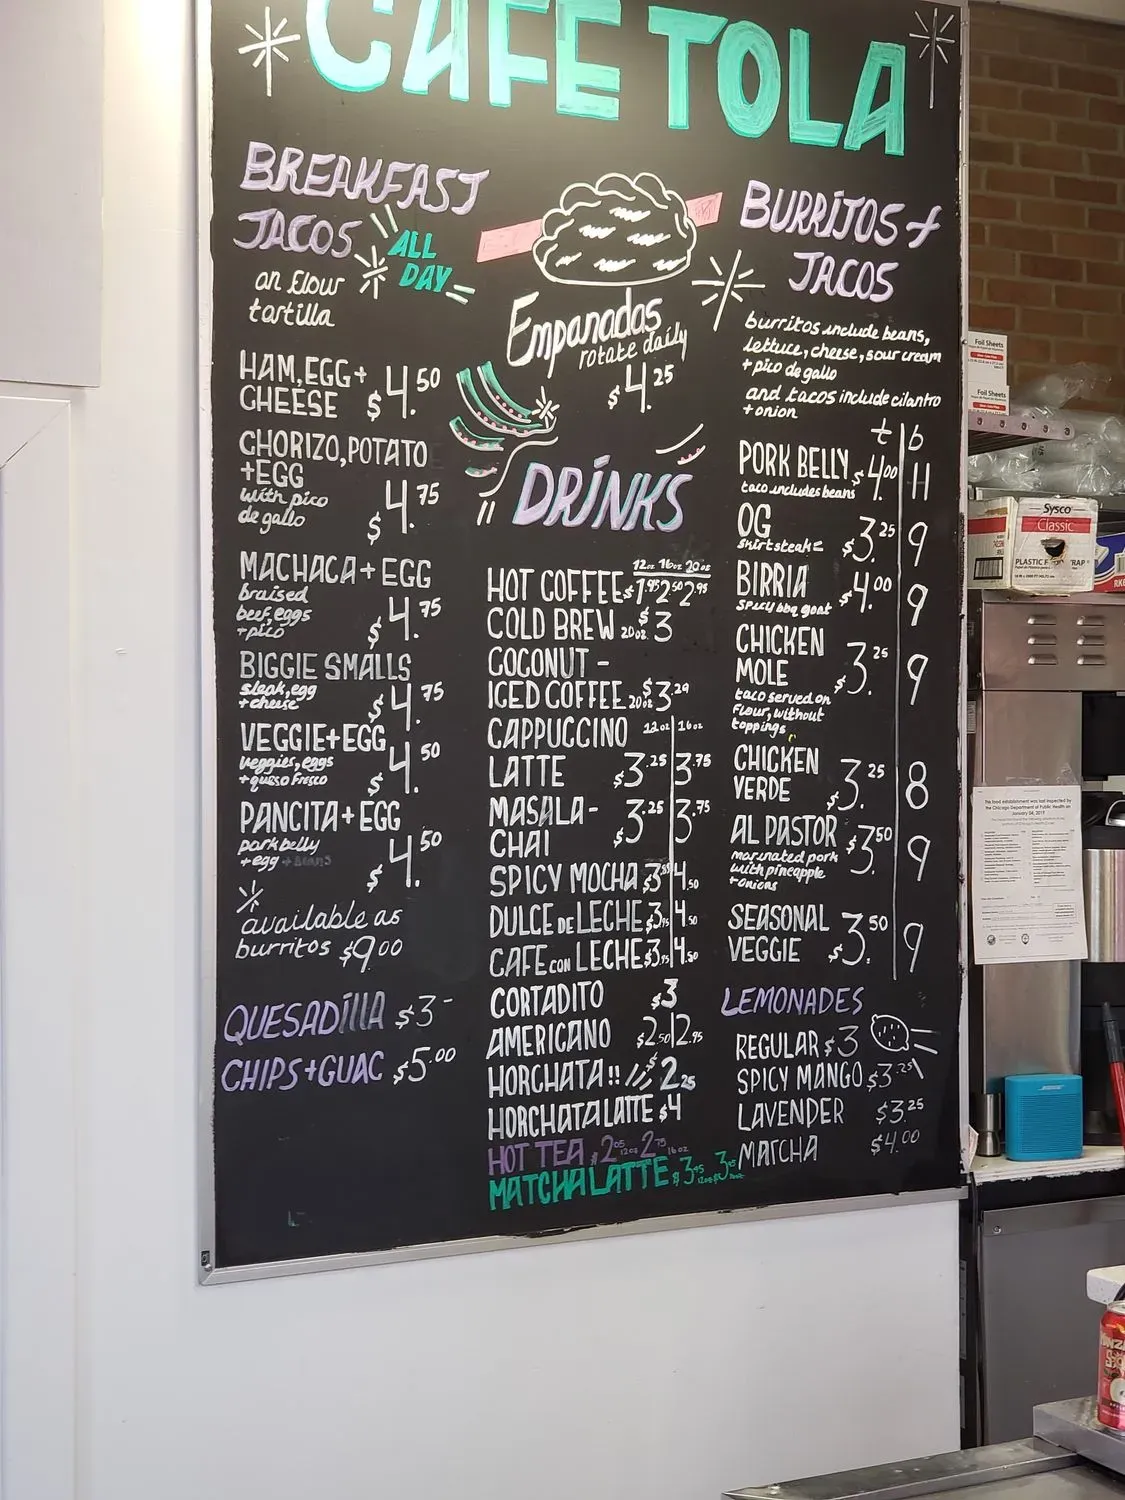 CAFE TOLA
BREAKFAST
TACOS
ALL
DAY
on flour
tortilla
HAM, EGG +
CHEESE $4.50
CHORIZO, POTATO
+ EGG
with pico
de gallo
$4.75
MACHACA + EGG
braised
beef, eggs
+ pico
$4.75
BIGGIE SMALLS
steak, egg
+ cheese
$4.75
VEGGIE + EGG
veggies, eggs
+ queso fresco
$4.50
PANCITA + EGG
pork belly
+ egg + beans
$4.50
available as
burritos $9.00
QUESADILLA $3-
CHIPS + GUAC $5.00
Empanadas
rotate daily
$4.25
DRINKS
12oz 16oz 20oz
HOT COFFEE $1.95 2.50 2.95
COLD BREW 20oz $3
COCONUT -
ICED COFFEE 20oz $3.29
CAPPUCCINO 12oz | 16oz
LATTE $3.25 | 3.75
MASALA - $3.25 | 3.75
CHAI
SPICY MOCHA $3 | 4.50
DULCE DE LECHE $3.75 | 4.50
CAFE CON LECHE $3.75 | 4.50
CORTADITO $3
AMERICANO $2.50 | 2.95
HORCHATA!! $2.25
HORCHATA LATTE $4
HOT TEA $2.05 12oz 2.75 16oz
MATCHA LATTE $3.95 12oz $3
BURRITOS +
TACOS
burritos include beans,
lettuce, cheese, sour cream
+ pico de gallo
and tacos include cilantro
+ onion
t | b
PORK BELLY $4.00 | 11
taco includes beans
OG $3.25 | 9
skirt steak
BIRRIA $4.00 | 9
spicy bbq goat
CHICKEN
MOLE $3.25 | 9
taco served on
flour, without
toppings
CHICKEN
VERDE $3.25 | 8
AL PASTOR $3.50 | 9
marinated pork
with pineapple
+ onions
SEASONAL
VEGGIE $3.50 | 9
LEMONADES
REGULAR $3
SPICY MANGO $3.25
LAVENDER $3.25
MATCHA $4.00
Foil Sheets
Foil Sheets
Sysco
Classic
PLASTIC F RAP
This food establishment was last inspected by
the Chicago Department of Public Health on
January 04, 2019
BOSE